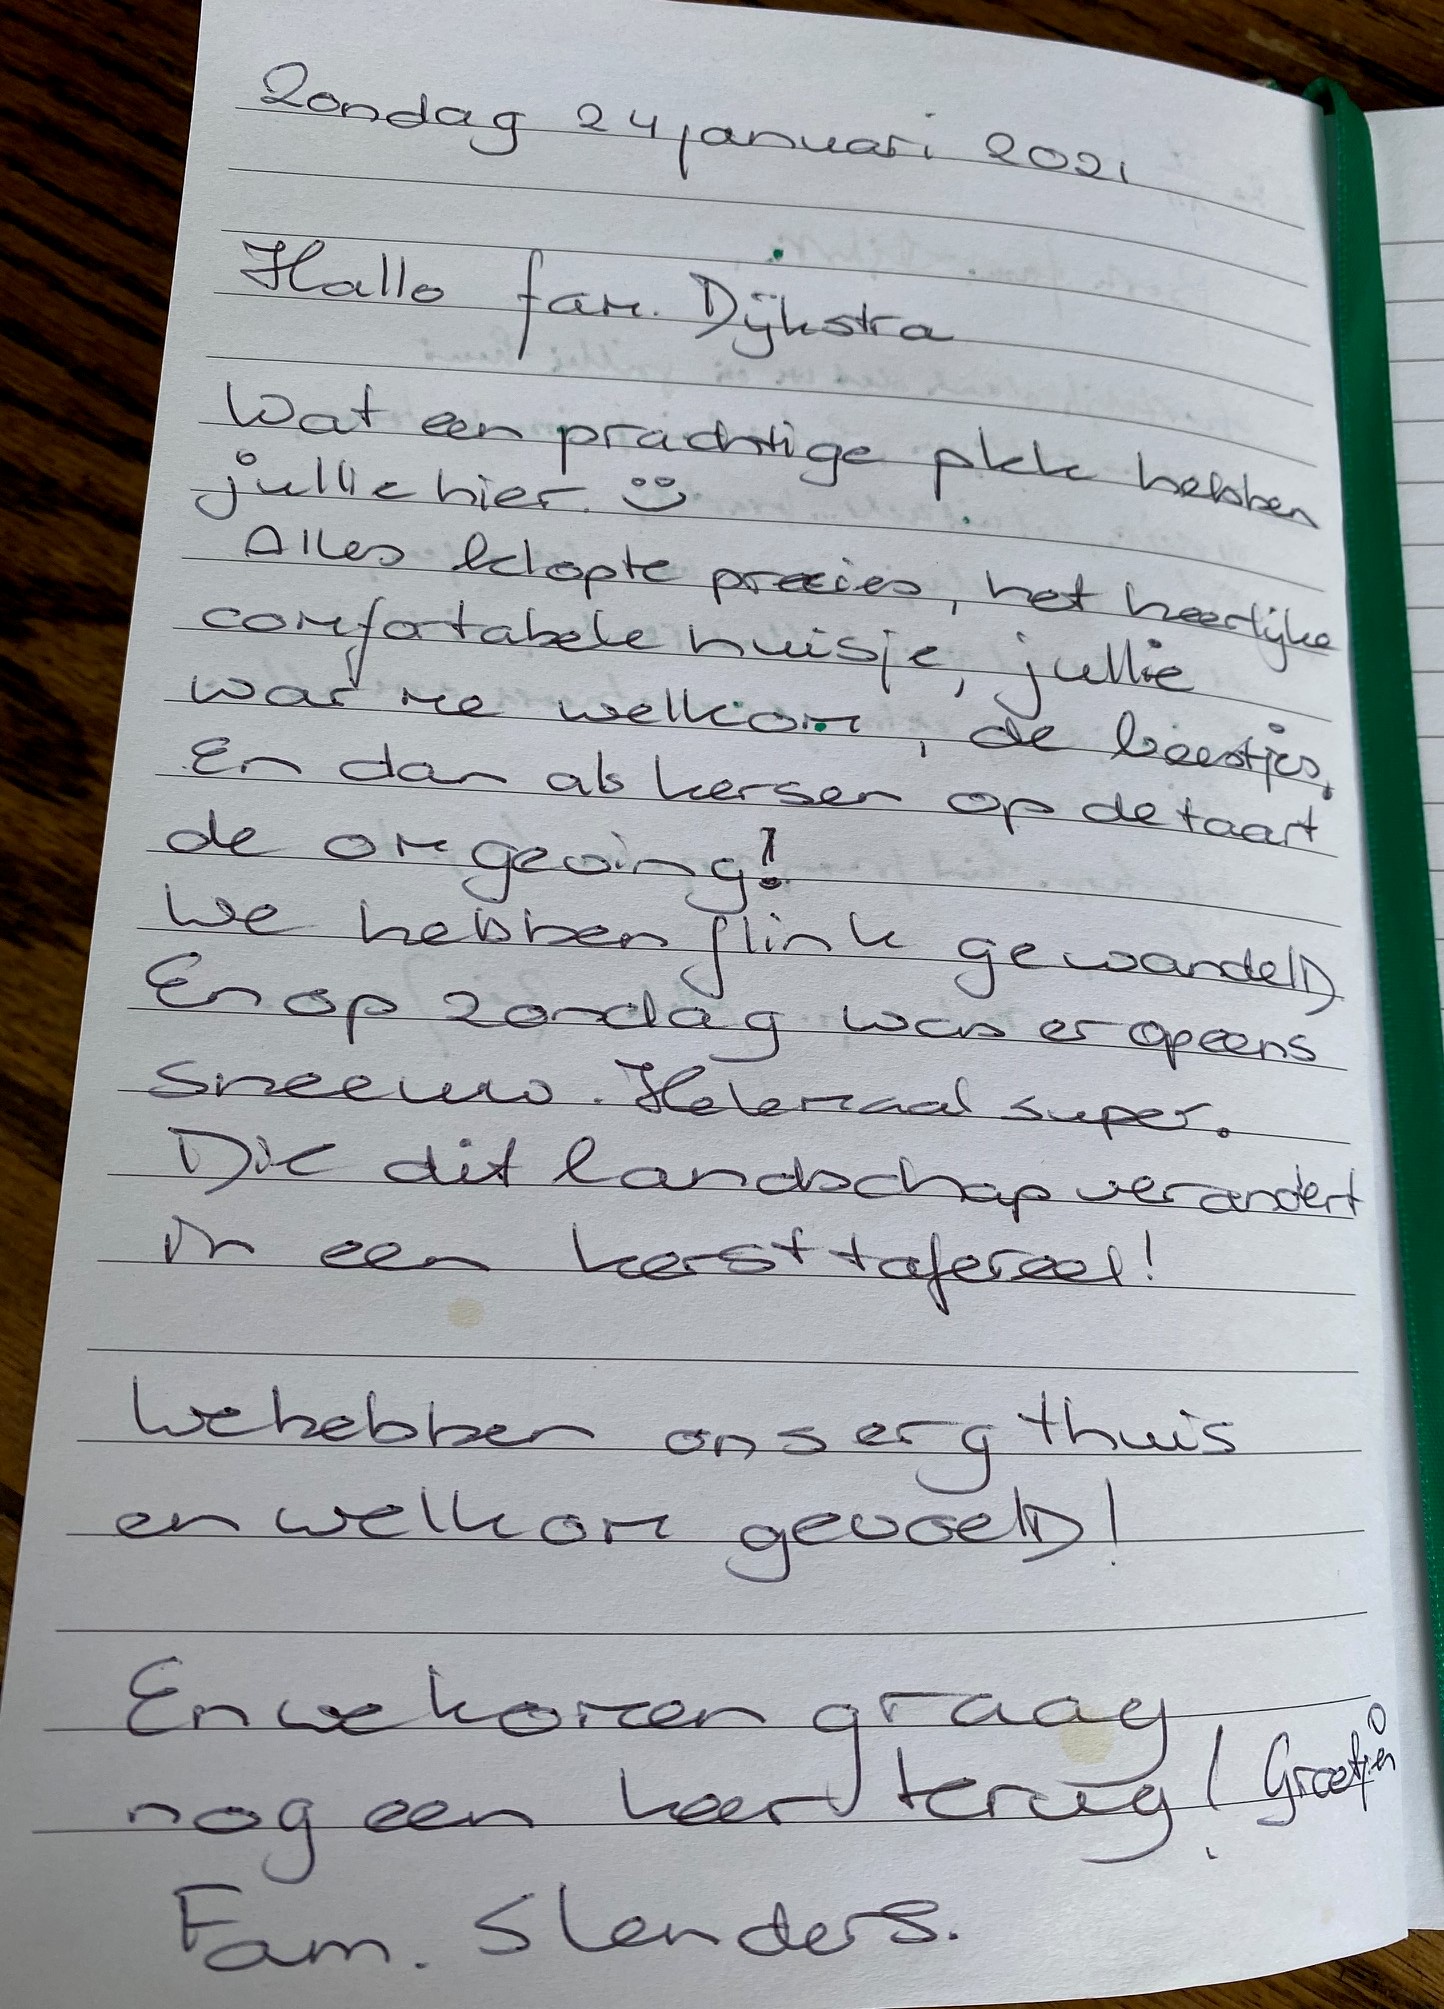 Zondag 24 januari 2021
Hallo fam. Dijkstra
Wat een prachtige plek hebben
jullie hier. ☺
Alles klopte precies, het heerlijke
comfortabele huisje, jullie
warme welkom, de beestjes,
En dan als kersen op de taart
de omgeving!
We hebben flink gewandeld
En op zondag was er opeens
sneeuw. Helemaal super.
Die dit landschap verandert
in een kersttafereel!
We hebben ons erg thuis
en welkom gevoeld!
En we komen graag
nog een keer terug! Groetjes
Fam. Slenders.